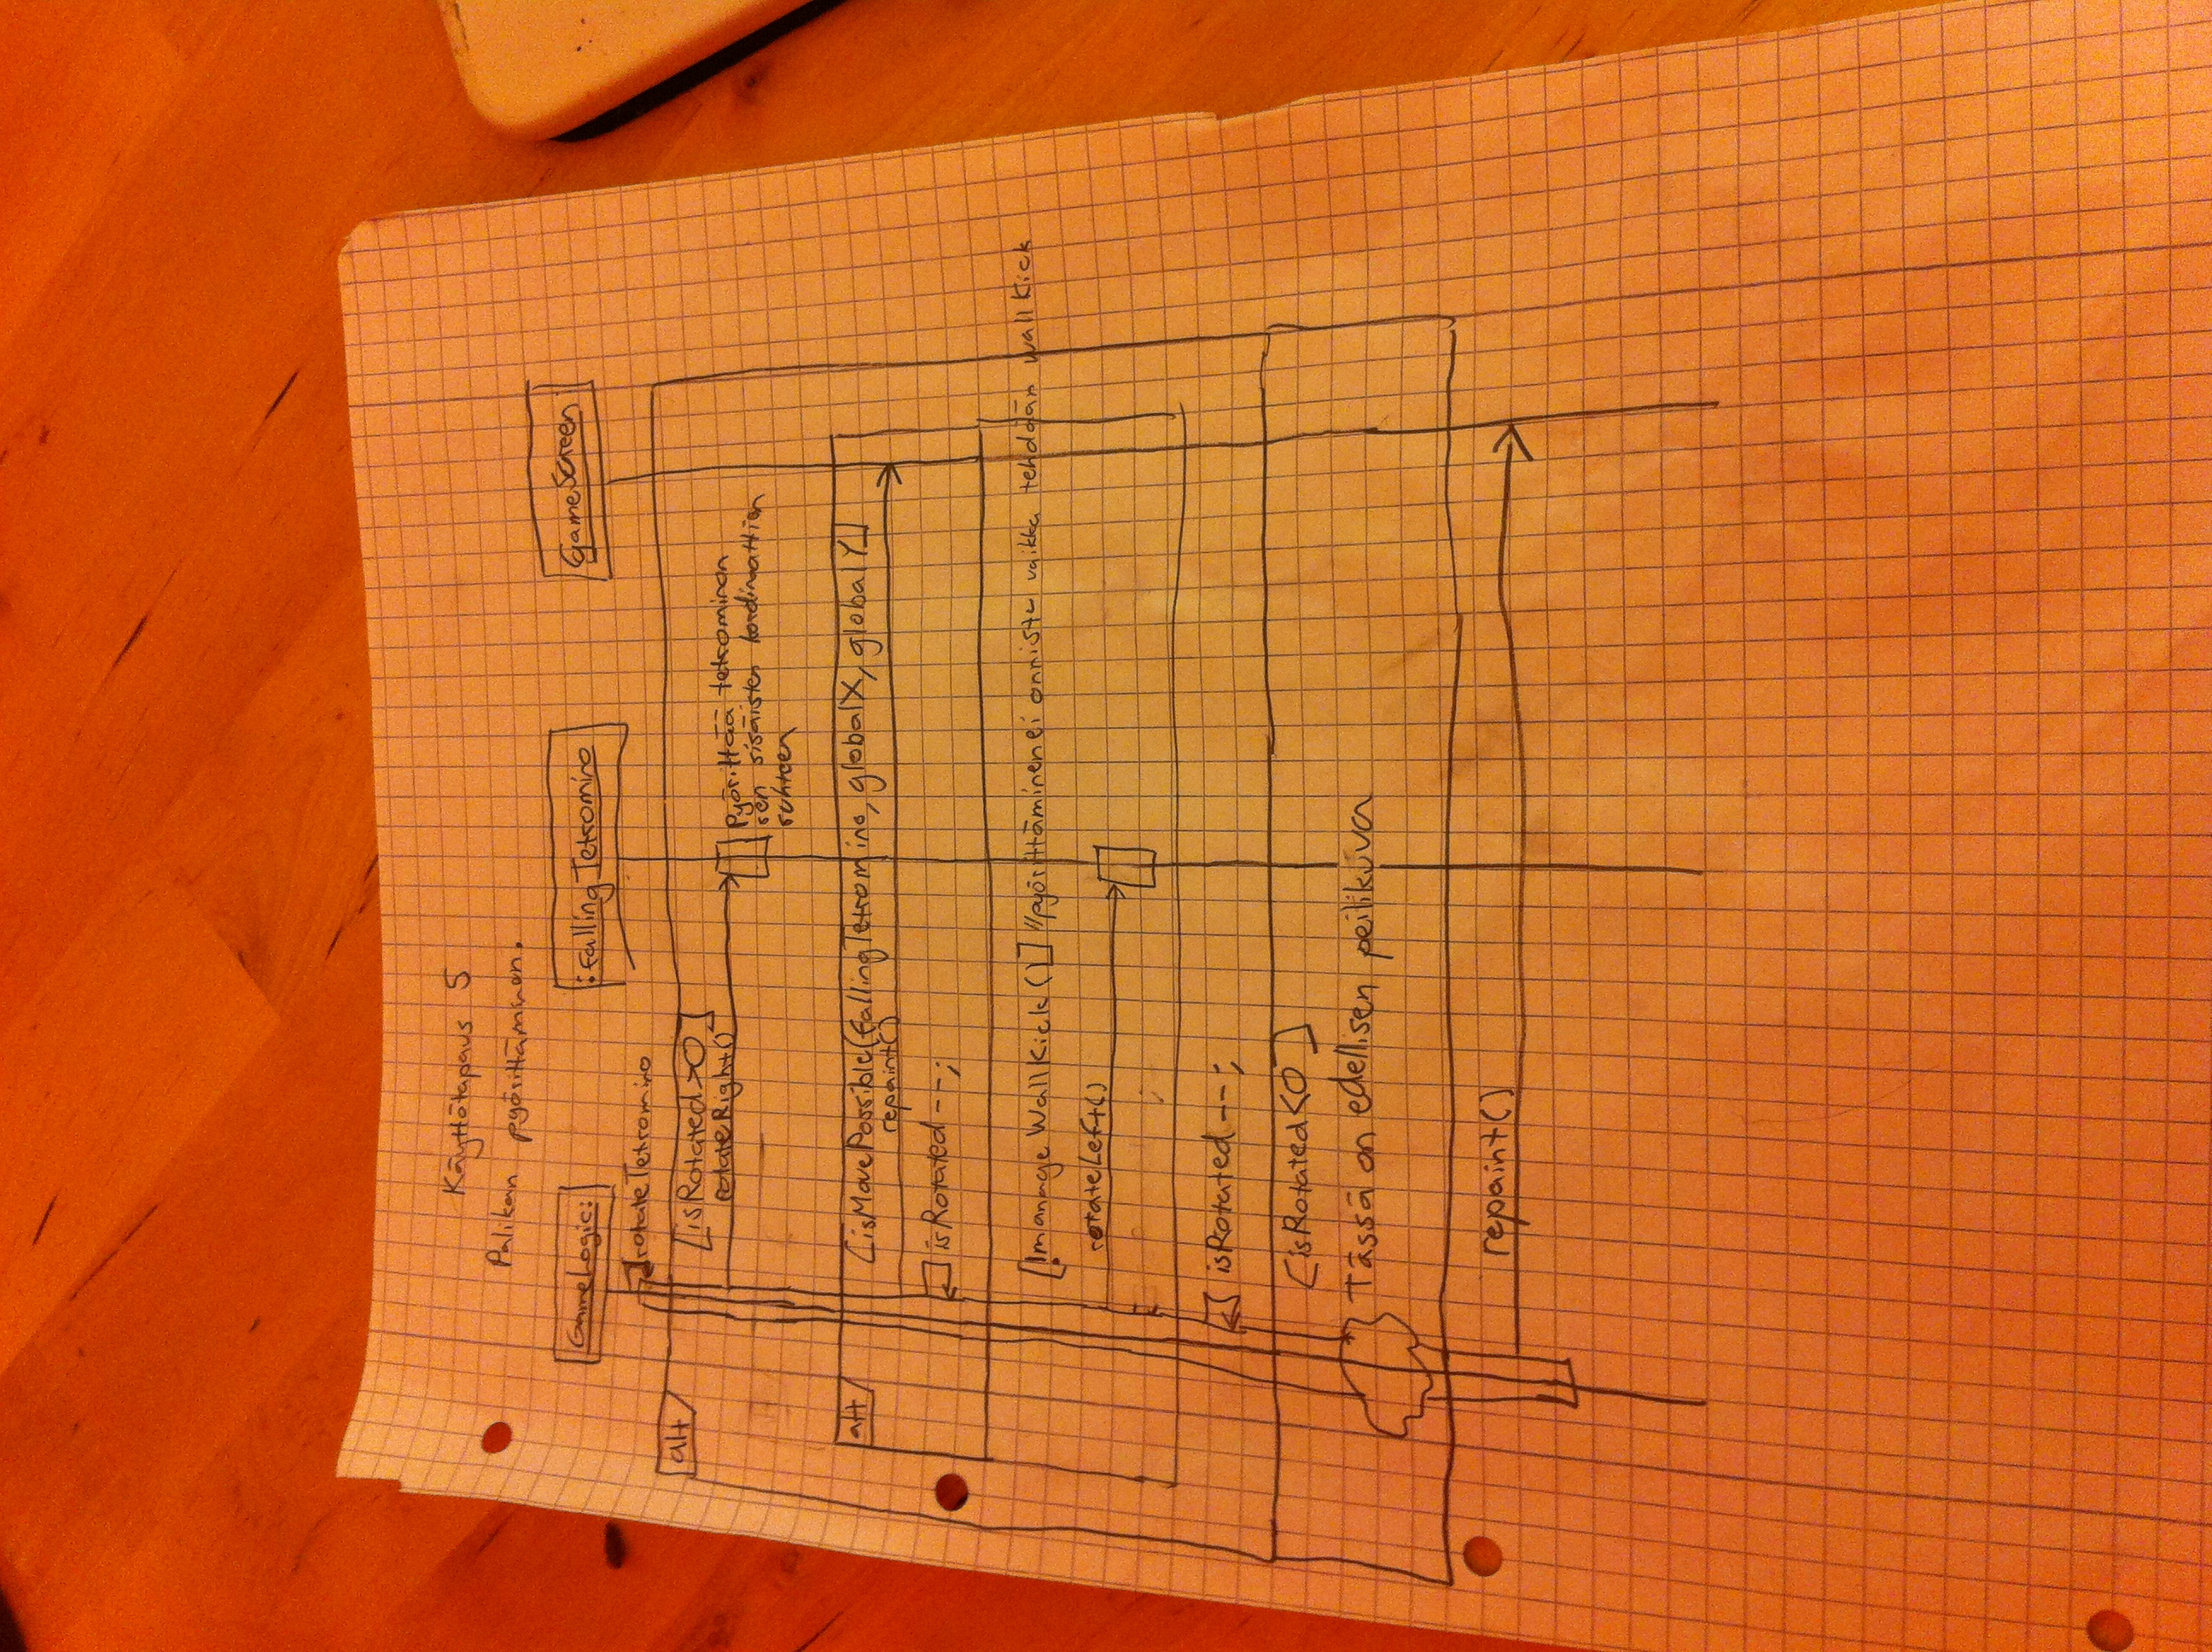 Käyttötapaus 5
Palikan pyörittäminen.
GameLogic:
:FallingTetromino
GameScreen
rotateTetromino
alt
[isRotated>0]
rotateRight()
pyörittää tetrominon
sen sisäisten kordinaattien
suhteen
alt
[isMovePossible(fallingTetromino, globalX, globalY]
repaint()
isRotated--;
[!manageWallKick()] //pyörittäminen ei onnistu vaikka tehdään wallKick
rotateLeft()
isRotated--;
[isRotated<0]
Tässä on edellisen peilikuva
repaint()